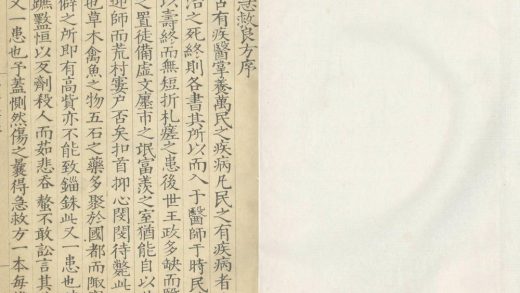 急救良方序
古有疾醫掌養萬民之疾病凡民之有疾病者
治之死終則各書其所以而入于醫師于時民
以壽終而無短折札瘥之患後世王政多缺而醫
之置徒備虛文廛市之氓富羡之室猶能自以
迎師而荒村寠户否矣扣首抑心閔閔待斃此
也草木禽魚之物五石之藥多聚於國都而陬
僻之所即有高貲亦不能致錙銖此又一患也
盭恒以反劑殺人而茹悲吞螫不敢訟言其
又一患也予蓋惻然傷之曩得急救方一本每